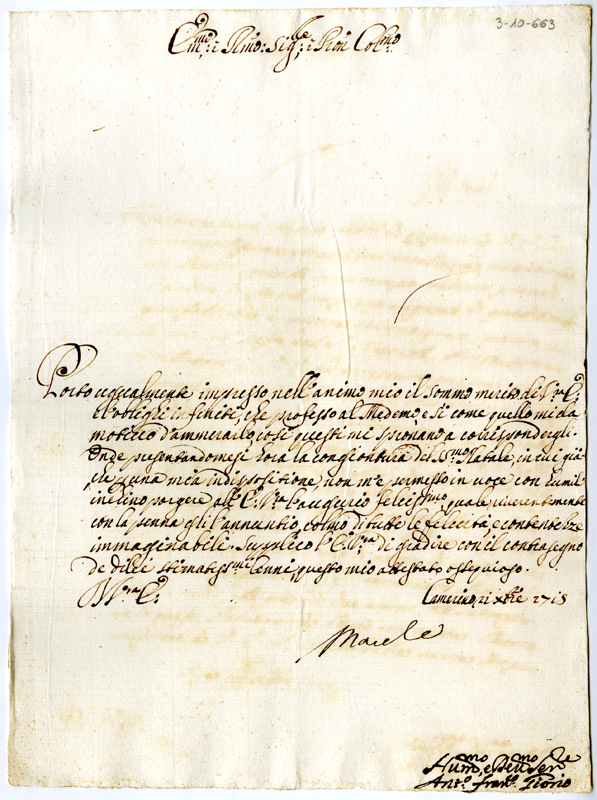 3-10-663
Em.mo: i Rmo: Sig.re: i Pron Col.mo
Porto ugualmente impresso nell'animo mio il sommo merito di V.ra E.
e l'oblighi infiniti, che professo al Medemo, e si come quello mi da
motivo d'ammirarlo, così questi mi spronano a corrispondergli.
Onde presentandomesi hora la congiontura del SS.mo Natale, in cui già
che una mia indispositione, non m'è permesso in voce con humil
inchino porgere all' E. V.ra l'augurio felicis.mo, quale riverentemente
con la penna gli l'annuntio, colmo di tutte le felicità, e contentezze
immaginabili. Supplico l'E. V.ra di gradire con il contrasegno
de di lei stimatissimi cenni, questo mio attestato ossequioso.
D V.ra E.
Camerino, 21 xbre 1713
Humo e Devmo Sere
Ant.o Fran.co Fiorio